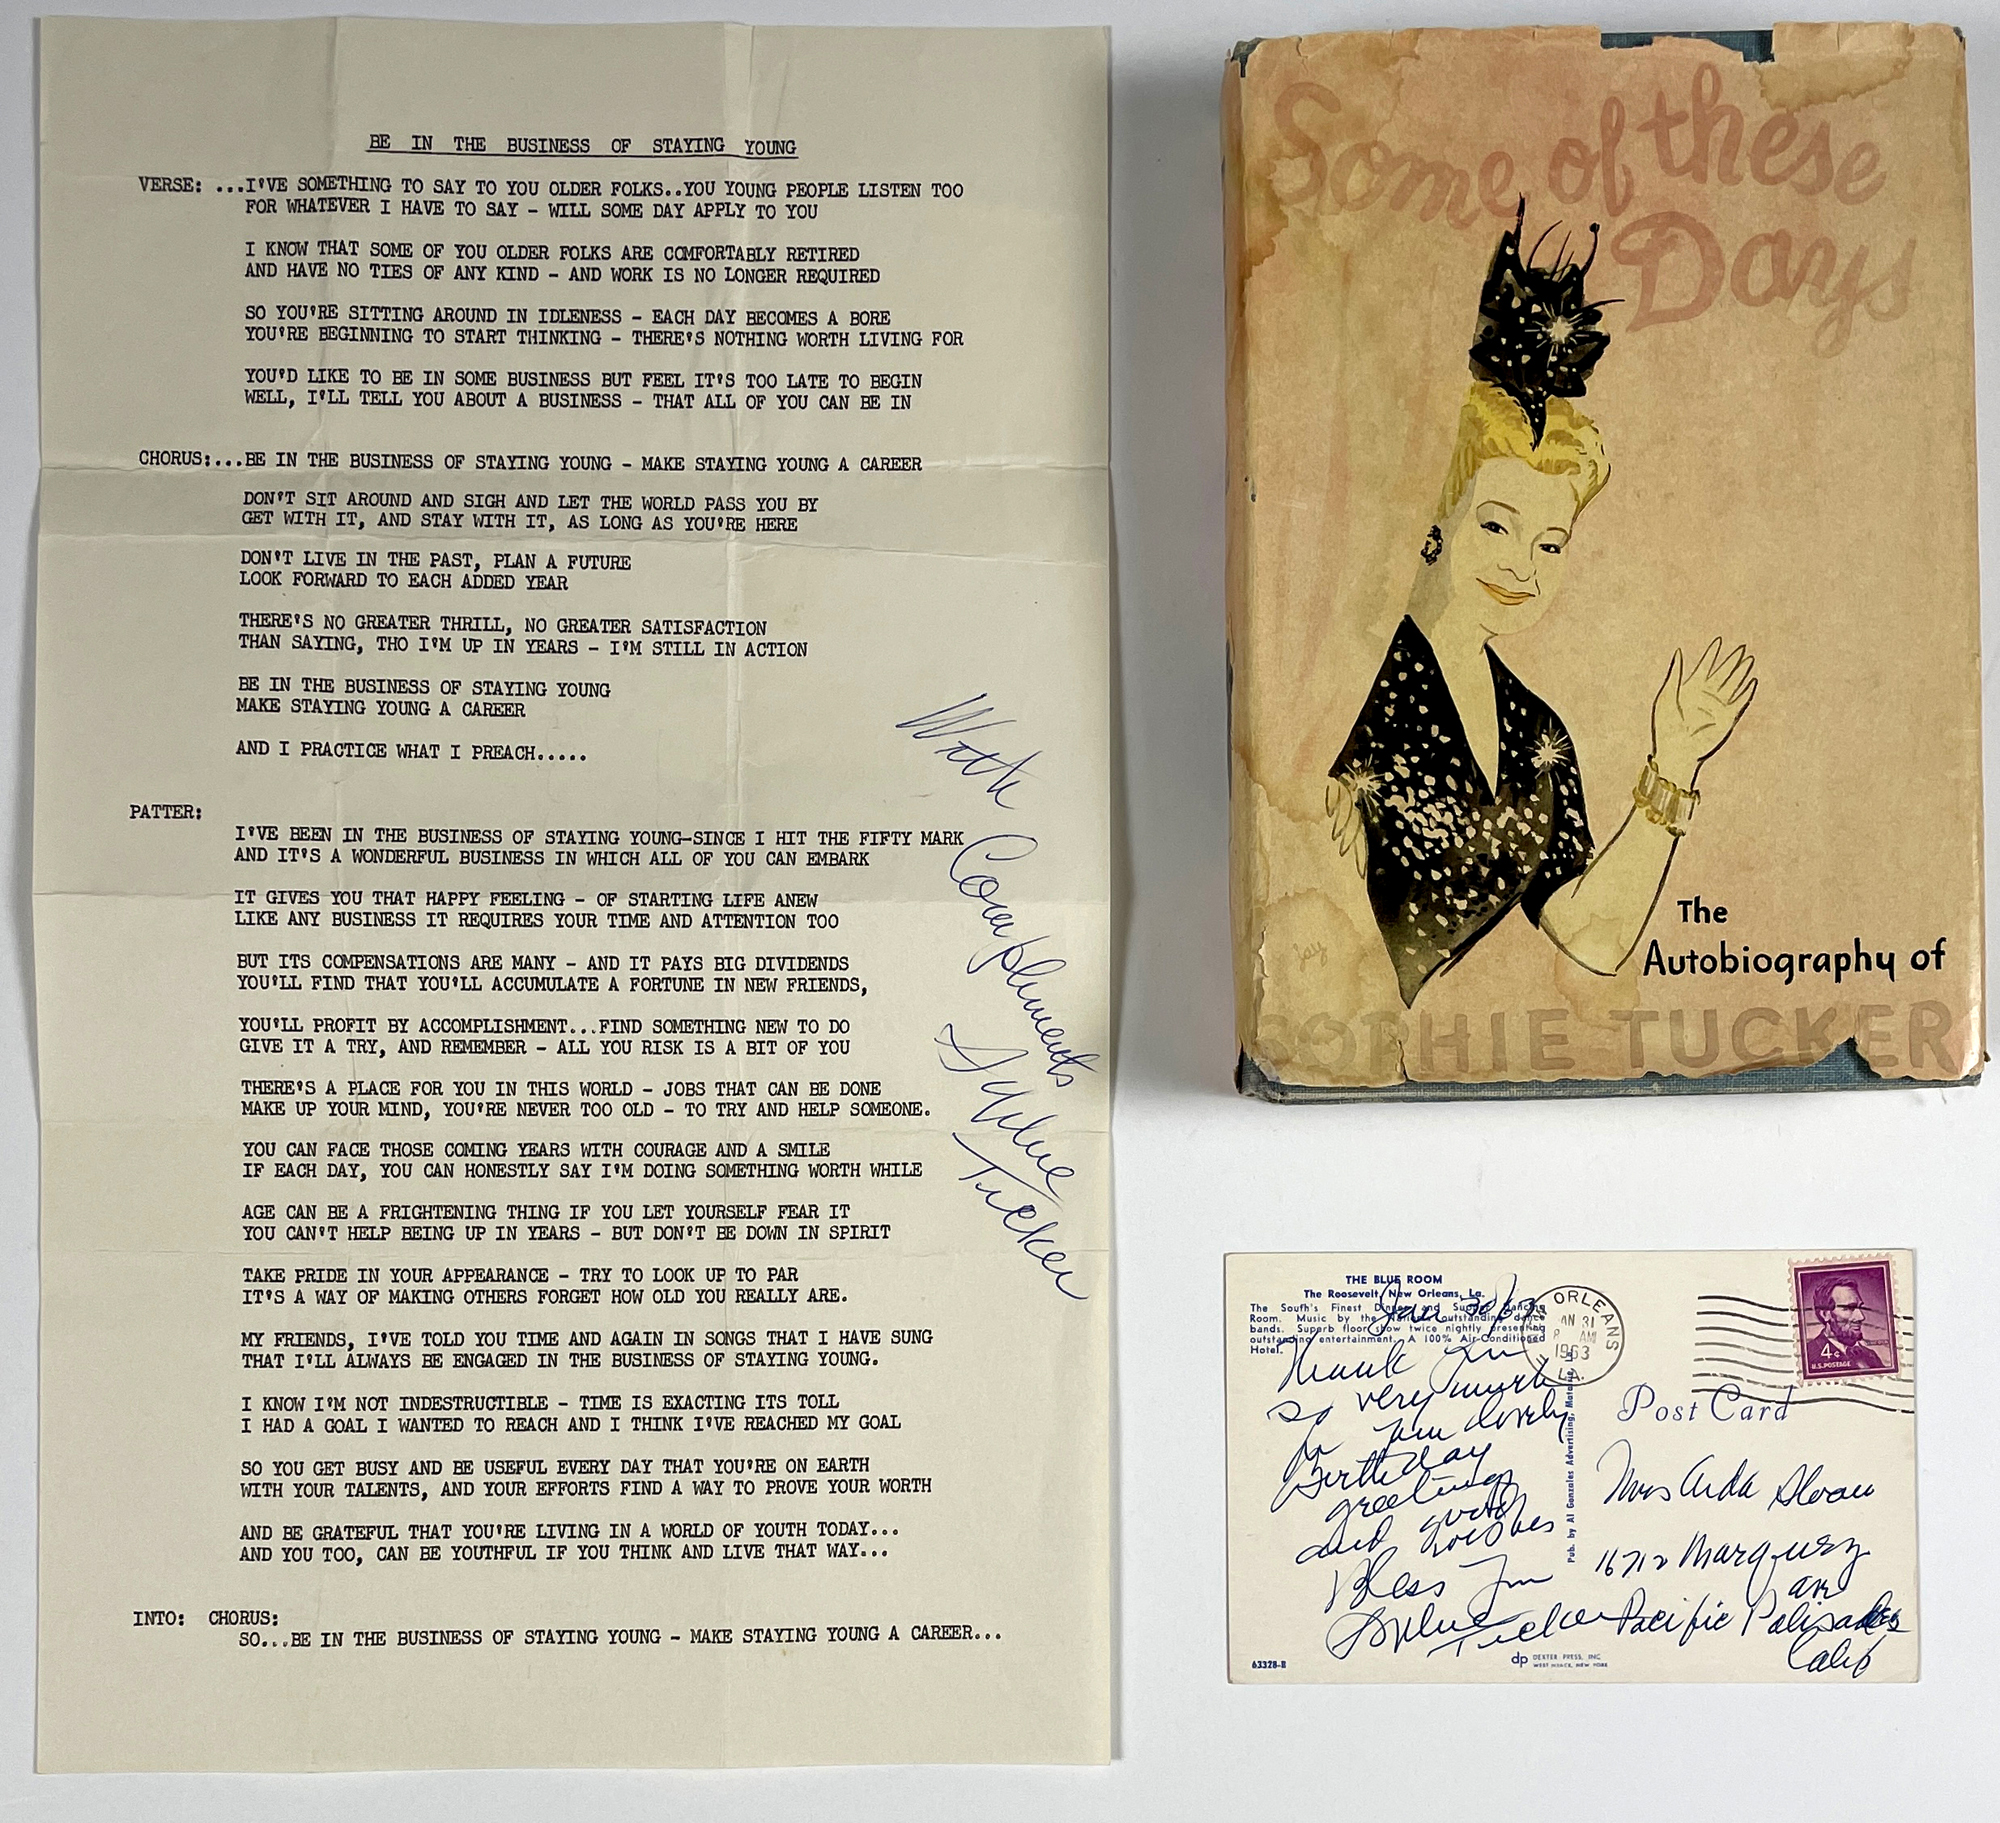 BE IN THE BUSINESS OF STAYING YOUNG
VERSE: ...I'VE SOMETHING TO SAY TO YOU OLDER FOLKS..YOU YOUNG PEOPLE LISTEN TOO
FOR WHATEVER I HAVE TO SAY - WILL SOME DAY APPLY TO YOU
I KNOW THAT SOME OF YOU OLDER FOLKS ARE COMFORTABLY RETIRED
AND HAVE NO TIES OF ANY KIND - AND WORK IS NO LONGER REQUIRED
SO YOU'RE SITTING AROUND IN IDLENESS - EACH DAY BECOMES A BORE
YOU'RE BEGINNING TO START THINKING - THERE'S NOTHING WORTH LIVING FOR
YOU'D LIKE TO BE IN SOME BUSINESS BUT FEEL IT'S TOO LATE TO BEGIN
WELL, I'LL TELL YOU ABOUT A BUSINESS - THAT ALL OF YOU CAN BE IN
CHORUS:...BE IN THE BUSINESS OF STAYING YOUNG - MAKE STAYING YOUNG A CAREER
DON'T SIT AROUND AND SIGH AND LET THE WORLD PASS YOU BY
GET WITH IT, AND STAY WITH IT, AS LONG AS YOU'RE HERE
DON'T LIVE IN THE PAST, PLAN A FUTURE
LOOK FORWARD TO EACH ADDED YEAR
THERE'S NO GREATER THRILL, NO GREATER SATISFACTION
THAN SAYING, THO I'M UP IN YEARS - I'M STILL IN ACTION
BE IN THE BUSINESS OF STAYING YOUNG
MAKE STAYING YOUNG A CAREER
AND I PRACTICE WHAT I PREACH.....
PATTER:
I'VE BEEN IN THE BUSINESS OF STAYING YOUNG-SINCE I HIT THE FIFTY MARK
AND IT'S A WONDERFUL BUSINESS IN WHICH ALL OF YOU CAN EMBARK
IT GIVES YOU THAT HAPPY FEELING - OF STARTING LIFE ANEW
LIKE ANY BUSINESS IT REQUIRES YOUR TIME AND ATTENTION TOO
BUT ITS COMPENSATIONS ARE MANY - AND IT PAYS BIG DIVIDENDS
YOU'LL FIND THAT YOU'LL ACCUMULATE A FORTUNE IN NEW FRIENDS,
YOU'LL PROFIT BY ACCOMPLISHMENT...FIND SOMETHING NEW TO DO
GIVE IT A TRY, AND REMEMBER - ALL YOU RISK IS A BIT OF YOU
THERE'S A PLACE FOR YOU IN THIS WORLD - JOBS THAT CAN BE DONE
MAKE UP YOUR MIND, YOU'RE NEVER TOO OLD - TO TRY AND HELP SOMEONE.
YOU CAN FACE THOSE COMING YEARS WITH COURAGE AND A SMILE
IF EACH DAY, YOU CAN HONESTLY SAY I'M DOING SOMETHING WORTH WHILE
AGE CAN BE A FRIGHTENING THING IF YOU LET YOURSELF FEAR IT
YOU CAN'T HELP BEING UP IN YEARS - BUT DON'T BE DOWN IN SPIRIT
TAKE PRIDE IN YOUR APPEARANCE - TRY TO LOOK UP TO PAR
IT'S A WAY OF MAKING OTHERS FORGET HOW OLD YOU REALLY ARE.
MY FRIENDS, I'VE TOLD YOU TIME AND AGAIN IN SONGS THAT I HAVE SUNG
THAT I'LL ALWAYS BE ENGAGED IN THE BUSINESS OF STAYING YOUNG.
I KNOW I'M NOT INDESTRUCTIBLE - TIME IS EXACTING ITS TOLL
I HAD A GOAL I WANTED TO REACH AND I THINK I'VE REACHED MY GOAL
SO YOU GET BUSY AND BE USEFUL EVERY DAY THAT YOU'RE ON EARTH
WITH YOUR TALENTS, AND YOUR EFFORTS FIND A WAY TO PROVE YOUR WORTH
AND BE GRATEFUL THAT YOU'RE LIVING IN A WORLD OF YOUTH TODAY...
AND YOU TOO, CAN BE YOUTHFUL IF YOU THINK AND LIVE THAT WAY...
INTO: CHORUS:
SO...BE IN THE BUSINESS OF STAYING YOUNG - MAKE STAYING YOUNG A CAREER...
With Compliments
Sophie
Tucker
Some of these
Days
The
Autobiography of
SOPHIE TUCKER
THE BLUE ROOM
The Roosevelt, New Orleans, La.
The South's Finest Dinner and Supper Dancing
Room. Music by the Nation's outstanding dance
bands. Superb floor show twice nightly presenting
outstanding entertainment. A 100% Air-Conditioned
Hotel.
Jan 30/63
Thank You
so very much
for your lovely
Birthday
greetings
and good
wishes
Bless You
Sophie
Tucker
63328-B
Pub. by Al Gonzales Advertising,
dp DEXTER PRESS, INC
WEST NYACK, NEW YORK
ORLEANS
JAN 31
8 AM
1963
LA.
4¢
U.S. POSTAGE
Post Card
Mrs Aida Sloan
16712 Marquez
ave
Pacific Palisades
Calif